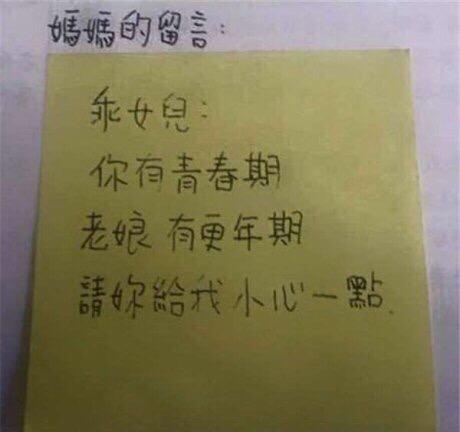 媽媽的留言:
乖女兒:
你有青春期
老娘有更年期
請妳給我小心一點.